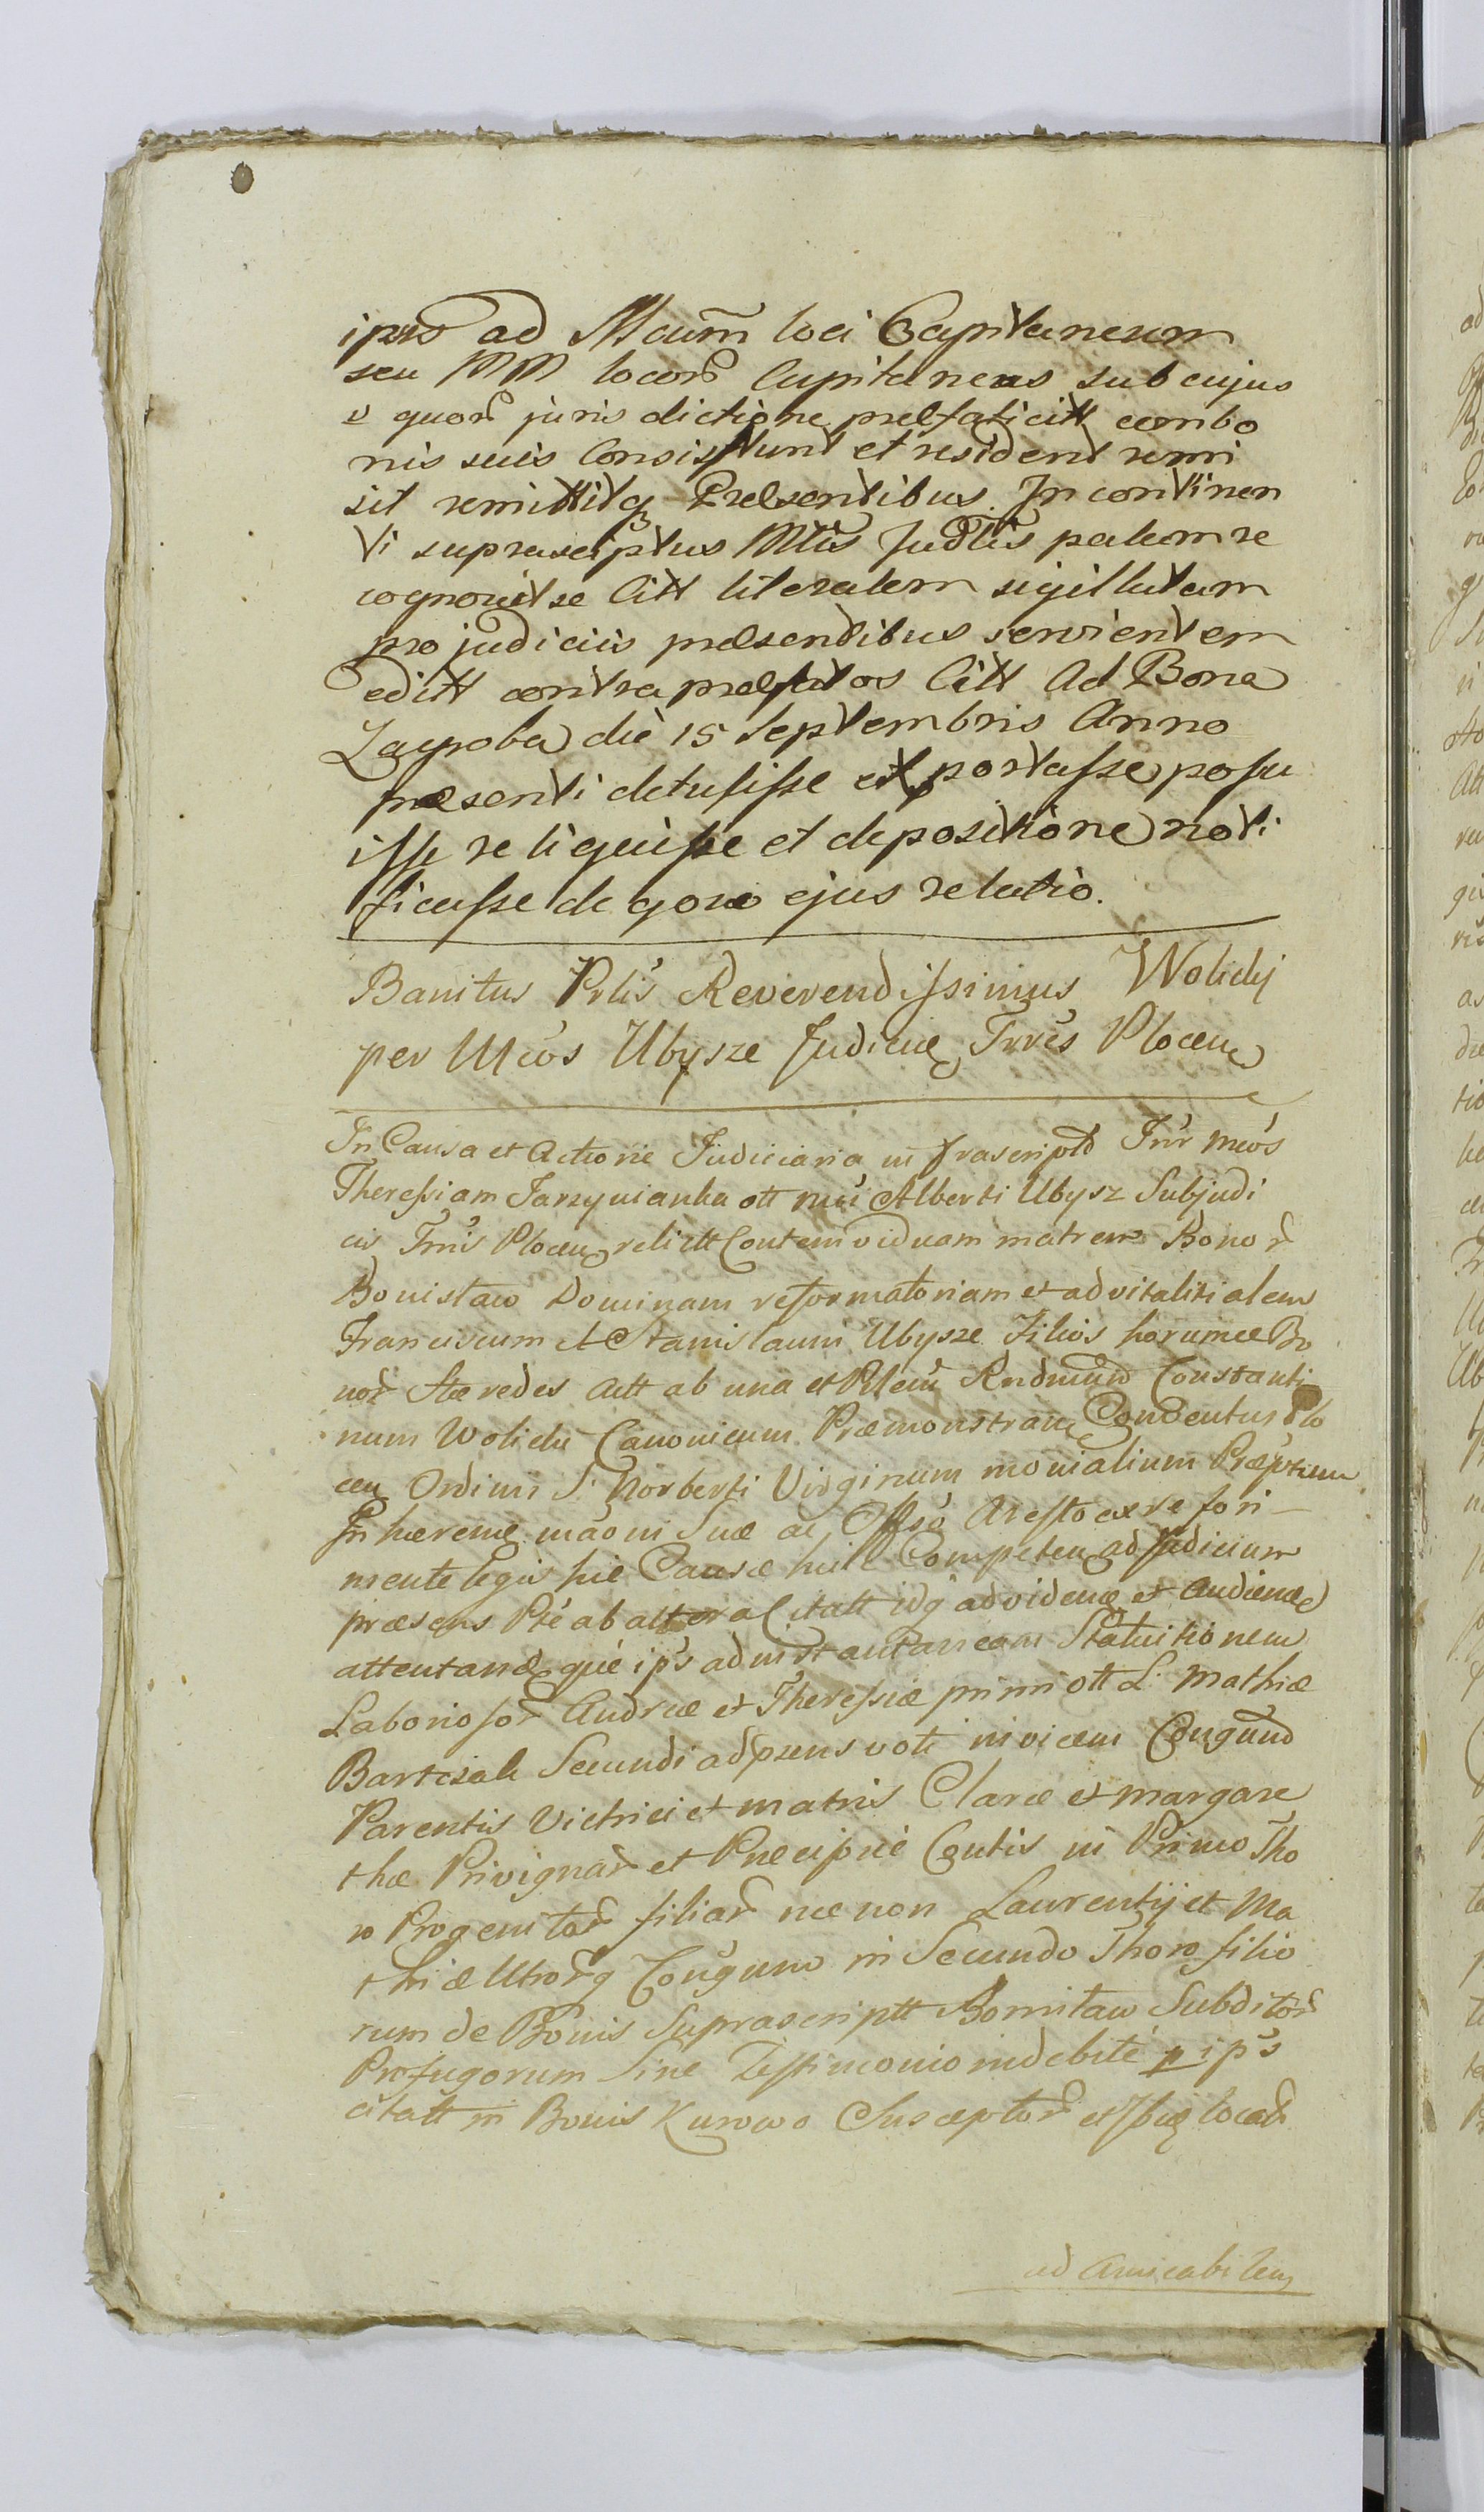 ipso ad Mcum loci Capitaneum
seu MM locor Capitaneus sub cujus
v quor juris dictione præfati citt com bo
nis suis Consistunt et resident remi
sit remittitq Præsentibus. In continen
ti suprascriptus Mtis Judtis palam re
cognovit se Citt literalem sigillatam
pro judiciis præsentibus servientem
editt contra præfatos Citt Ad Bona
Zagroba die 15 Septembris Anno
præsenti detulisse et portasse posu
isse reliquisse et depositione noti
ficasse de quo ejus relatio.
Banitus Prlis Reverendissimus Wolicky
per Mcos Ubysze Judicæ Trris Plocen
In Causa et Actione Judiciaria infrascript Intr Mcos
Theresiam Jarzynianka ott mci Alberti Ubysz Subjudi
cis Trris Plocen relictt Contem viduam matrem Bonor
Bonislaw Dominam reformatoriam et advitalitialem
Franciscum et Stanislaum Ubysze Filios horumce Bo
nor Hæredes Actt ab una et Rlem Rndmum Constanti
num Wolicki Canonicum Præmonstran Conventus Plo
cen Ordinis S. Norberti Virginum monialium Præptum
In hærene maoni Suæ ac Offso Aresto ex re fori-
mente legis hic Causæ huic Competen ad Judicium
præsens Pte ab altera Citatt idq ad videnæ et Audienæ
attentandæ que ips ad instantaneam Statuitionem
Laboriosor Andreæ et Theresiæ primi ott L. Mathiæ
Bartczak Secundi ad præns voti invicem Congund
Parentis Victrici et matris Claræ et Margare
thæ Privignar et Præcipue Contis in Primo Tho
ro Progenitar filiar nec non Laurentij et Ma
thiæ Utrorq Congum in Secundo Thoro filio
rum de Bonis Suprascriptt Bonislaw Subditor
Profugorum Sine Testimonio indebite p ips
citatt in Bonis Kurowo Susceptor et locat
ad Amicabilem